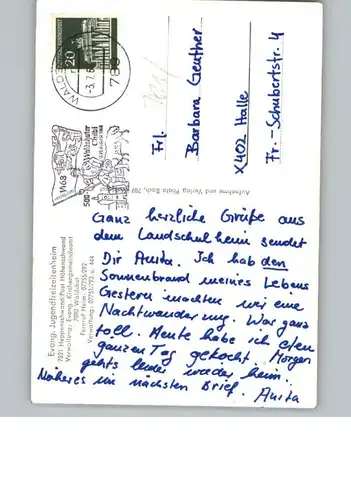 20
WALDS
-3.7.6
789
Waldshuter
Chilbi
M68
500
Frl.
Barbara Geuther
X402 Halle
Fr.-Schubertstr. 4
Aufnahme und Verlag Photo Bach, 789
Evang. Jugendfreizeitenheim
7891 Heppenschwand/Post Höhenschwand
Verwaltung: Evang. Kirchengemeindeamt
7890 Waldshut
Fernruf Heim: 07755/292
Verwaltung: 07751/793 u. 444
Ganz herzliche Grüße aus
dem Landschulheim sendet
Dir Anita. Ich hab den
Sonnenbrand meines Lebens
Gestern machten wir eine
Nachtwanderung. War ganz
toll. Heute habe ich den
ganzen Tag gekocht. Morgen
gehts leider wieder heim.
Näheres im nächsten Brief. Anita